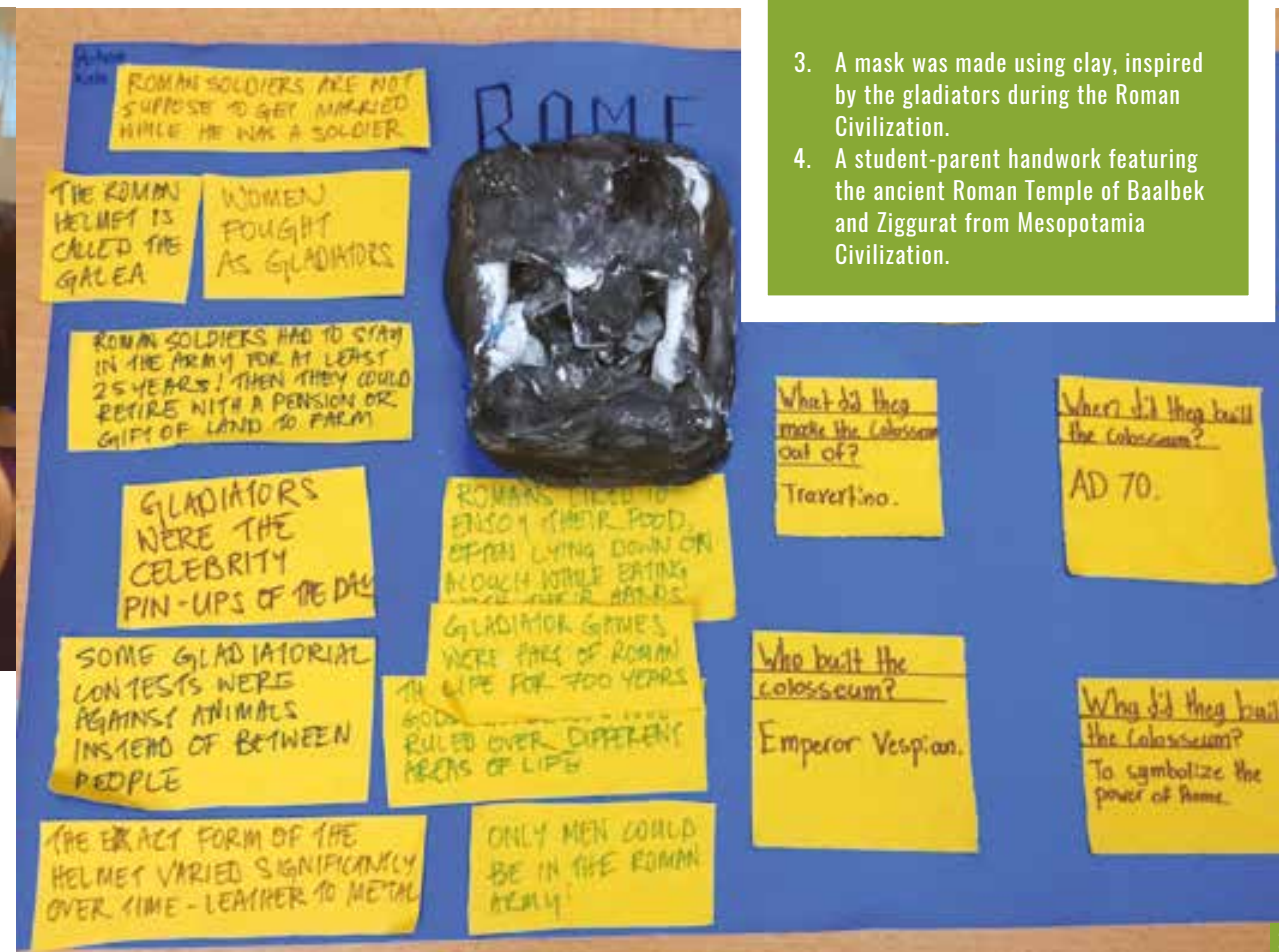 3. A mask was made using clay, inspired
by the gladiators during the Roman
Civilization.
4. A student-parent handwork featuring
the ancient Roman Temple of Baalbek
and Ziggurat from Mesopotamia
Civilization.
ROME
ROMAN SOLDIERS ARE NOT
SUPPOSE TO GET MARRIED
WHILE HE WAS A SOLDIER
THE ROMAN
HELMET IS
CALLED THE
GALEA
WOMEN
FOUGHT
AS GLADIATORS
ROMAN SOLDIERS HAD TO STAY
IN THE ARMY FOR AT LEAST
25 YEARS! THEN THEY COULD
RETIRE WITH A PENSION OR
GIFT OF LAND TO FARM
GLADIATORS
WERE THE
CELEBRITY
PIN-UPS OF THE DAY
ROMANS LIKED TO
ENJOY THEIR FOOD,
OFTEN LYING DOWN ON
A COUCH WHILE EATING
WITH THEIR HANDS
GLADIATOR GAMES
WERE PART OF ROMAN
LIFE FOR 700 YEARS
GODS
RULED OVER DIFFERENT
AREAS OF LIFE
SOME GLADIATORIAL
CONTESTS WERE
AGAINST ANIMALS
INSTEAD OF BETWEEN
PEOPLE
THE EXACT FORM OF THE
HELMET VARIED SIGNIFICANTLY
OVER TIME - LEATHER TO METAL
ONLY MEN COULD
BE IN THE ROMAN
ARMY!
What did they
make the Colosseum
out of?
Travertino.
When did they build
the colosseum?
AD 70.
Who built the
colosseum?
Emperor Vespian.
Why did they buil
the Colosseum?
To symbolize the
power of Rome.